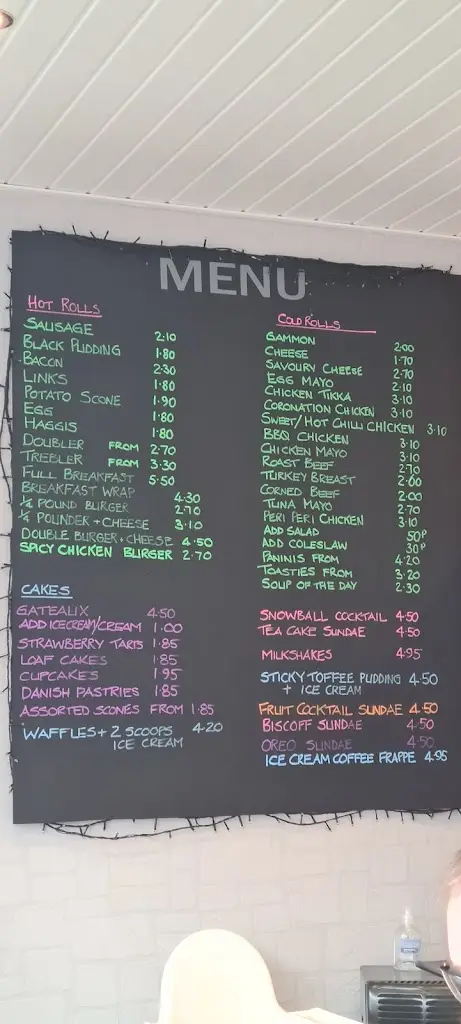 MENU
HOT ROLLS
SAUSAGE 2.10
BLACK PUDDING 1.80
BACON 2.30
LINKS 1.80
POTATO SCONE 1.90
EGG 1.80
HAGGIS 1.80
DOUBLER FROM 2.70
TREBLER FROM 3.30
FULL BREAKFAST 5.50
BREAKFAST WRAP 4.30
¼ POUND BURGER 2.70
¼ POUNDER + CHEESE 3.10
DOUBLE BURGER + CHEESE 4.50
SPICY CHICKEN BURGER 2.70
CAKES
GATEAUX 4.50
ADD ICECREAM/CREAM 1.00
STRAWBERRY TARTS 1.85
LOAF CAKES 1.85
CUPCAKES 1.95
DANISH PASTRIES 1.85
ASSORTED SCONES FROM 1.85
WAFFLES + 2 SCOOPS 4.20
ICE CREAM
COLD ROLLS
GAMMON 2.00
CHEESE 1.70
SAVOURY CHEESE 2.70
EGG MAYO 2.10
CHICKEN TIKKA 3.10
CORONATION CHICKEN 3.10
SWEET/HOT CHILLI CHICKEN 3.10
BBQ CHICKEN 3.10
CHICKEN MAYO 3.10
ROAST BEEF 2.70
TURKEY BREAST 2.00
CORNED BEEF 2.00
TUNA MAYO 2.70
PERI PERI CHICKEN 3.10
ADD SALAD 50P
ADD COLESLAW 30P
PANINIS FROM 4.20
TOASTIES FROM 3.20
SOUP OF THE DAY 2.30
SNOWBALL COCKTAIL 4.50
TEA CAKE SUNDAE 4.50
MILKSHAKES 4.95
STICKY TOFFEE PUDDING 4.50
+ ICE CREAM
FRUIT COCKTAIL SUNDAE 4.50
BISCOFF SUNDAE 4.50
OREO SUNDAE 4.50
ICE CREAM COFFEE FRAPPE 4.95